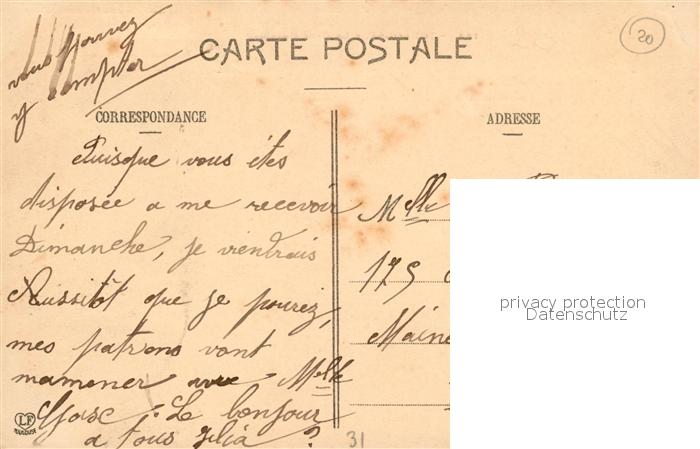 vous pouvez
y compter
CARTE POSTALE
20
CORRESPONDANCE
ADRESSE
Puisque vous êtes
disposée a me recevoir
Dimanche, je viendrais
Aussitôt que je pourez,
mes patrons vont
mamener avec Melle
Le bonjour
a tous
Melle
175
Maine
privacy protection
Datenschutz
LF
31